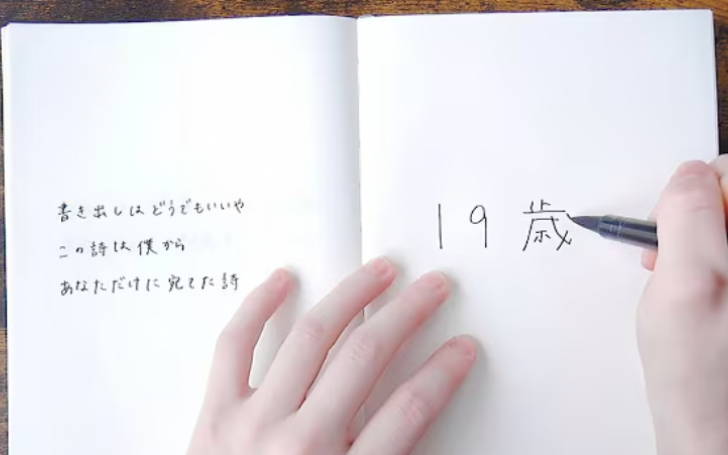 書き出しはどうでもいいや
この詩は僕から
あなただけに宛てた詩
19歳